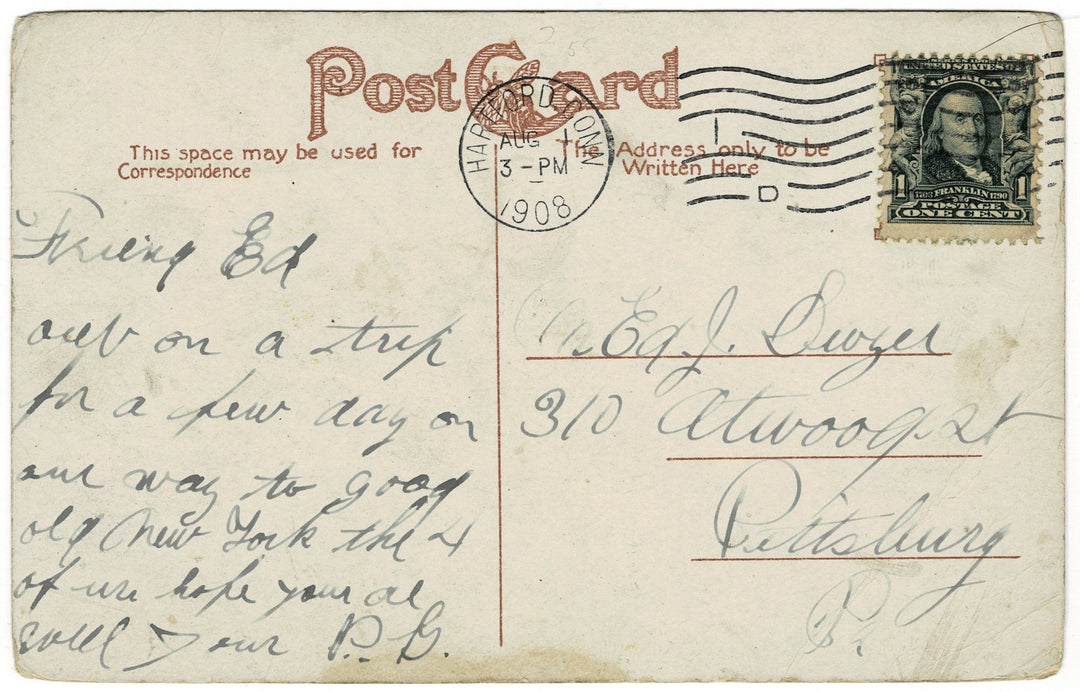 2 55
Post Card
HARTFORD, CONN
AUG 1
3 - PM
1908
D
UNITED STATES OF
AMERICA
1 1
1706 FRANKLIN 1790
POSTAGE
ONE CENT
This space may be used for
Correspondence
The Address only to be
Written Here
Friend Ed
out on a trip
for a few day on
our way to good
old New York the 4
of us hope your al
well your P. G.
Ed. J. Dwyer
310 Atwood St
Pittsburg
Pa.